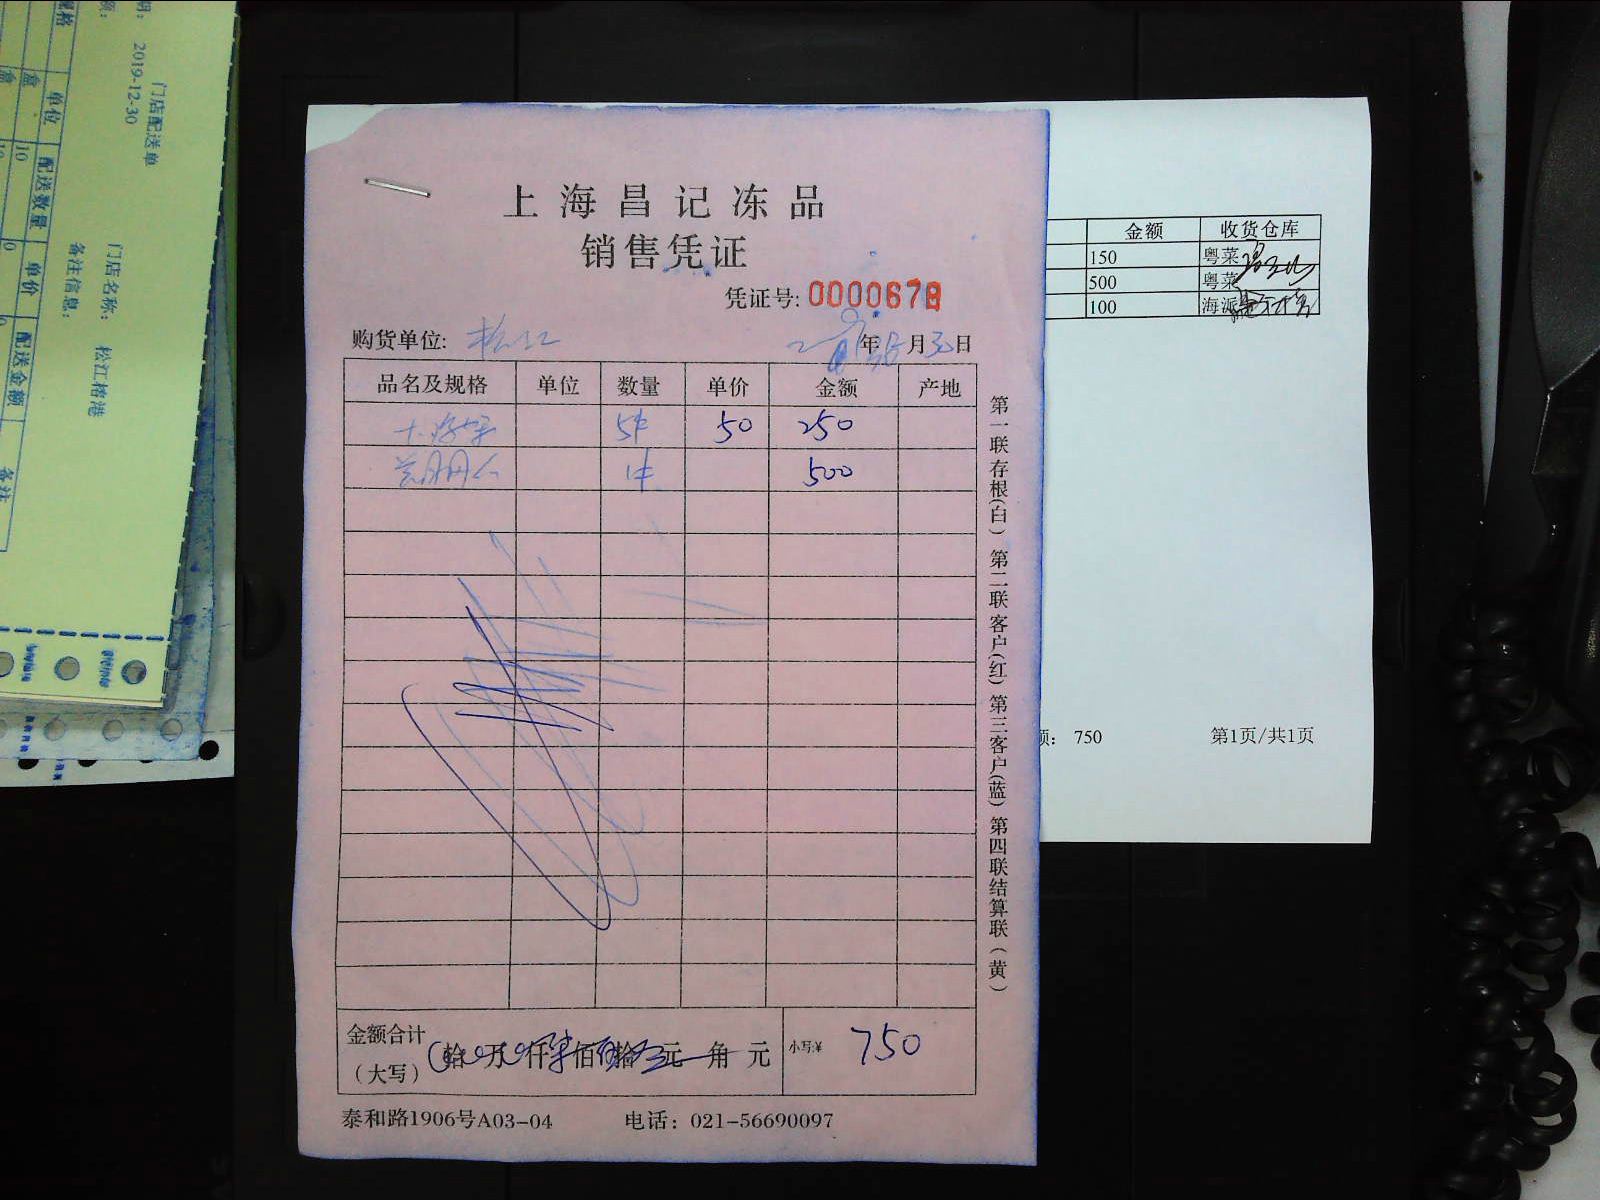 上海昌记冻品
销售凭证
凭证号: 0000678
购货单位: 松江 年 月 日
品名及规格 单位 数量 单价 金额 产地
5件 50 250
1件 500
金额合计
(大写) 拾 万 仟 佰 拾 元 角 元 小写:¥ 750
泰和路1906号A03-04 电话: 021-56690097
第一联存根(白) 第二联客户(红) 第三客户(蓝) 第四联结算联(黄)
金额 收货仓库
150 粤菜
500 粤菜
100 海派
额: 750 第1页/共1页
门店配送单
期: 2019-12-30
门店名称: 松江榕港
备注信息:
规格 单位 配送数量 单价 配送金额 备注
盒 10
盒 10